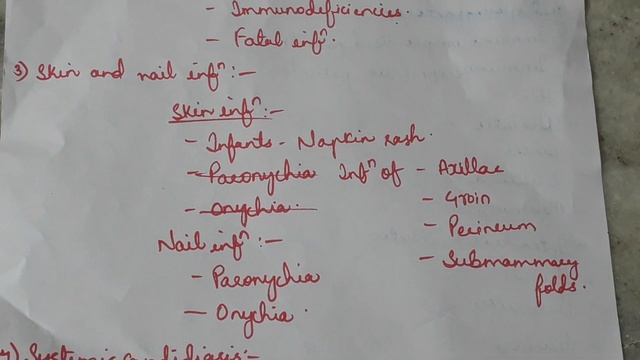 - Immunodeficiencies.
- Fatal infⁿ.
3) Skin and nail infⁿ:-
Skin infⁿ:-
- Infants - Napkin rash.
- Paronychia Infⁿ of - Axillae
- Onychia. - Groin
- Perineum
Nail infⁿ:- - Submammary folds.
- Paronychia
- Onychia.
4) Systemic candidiasis:-